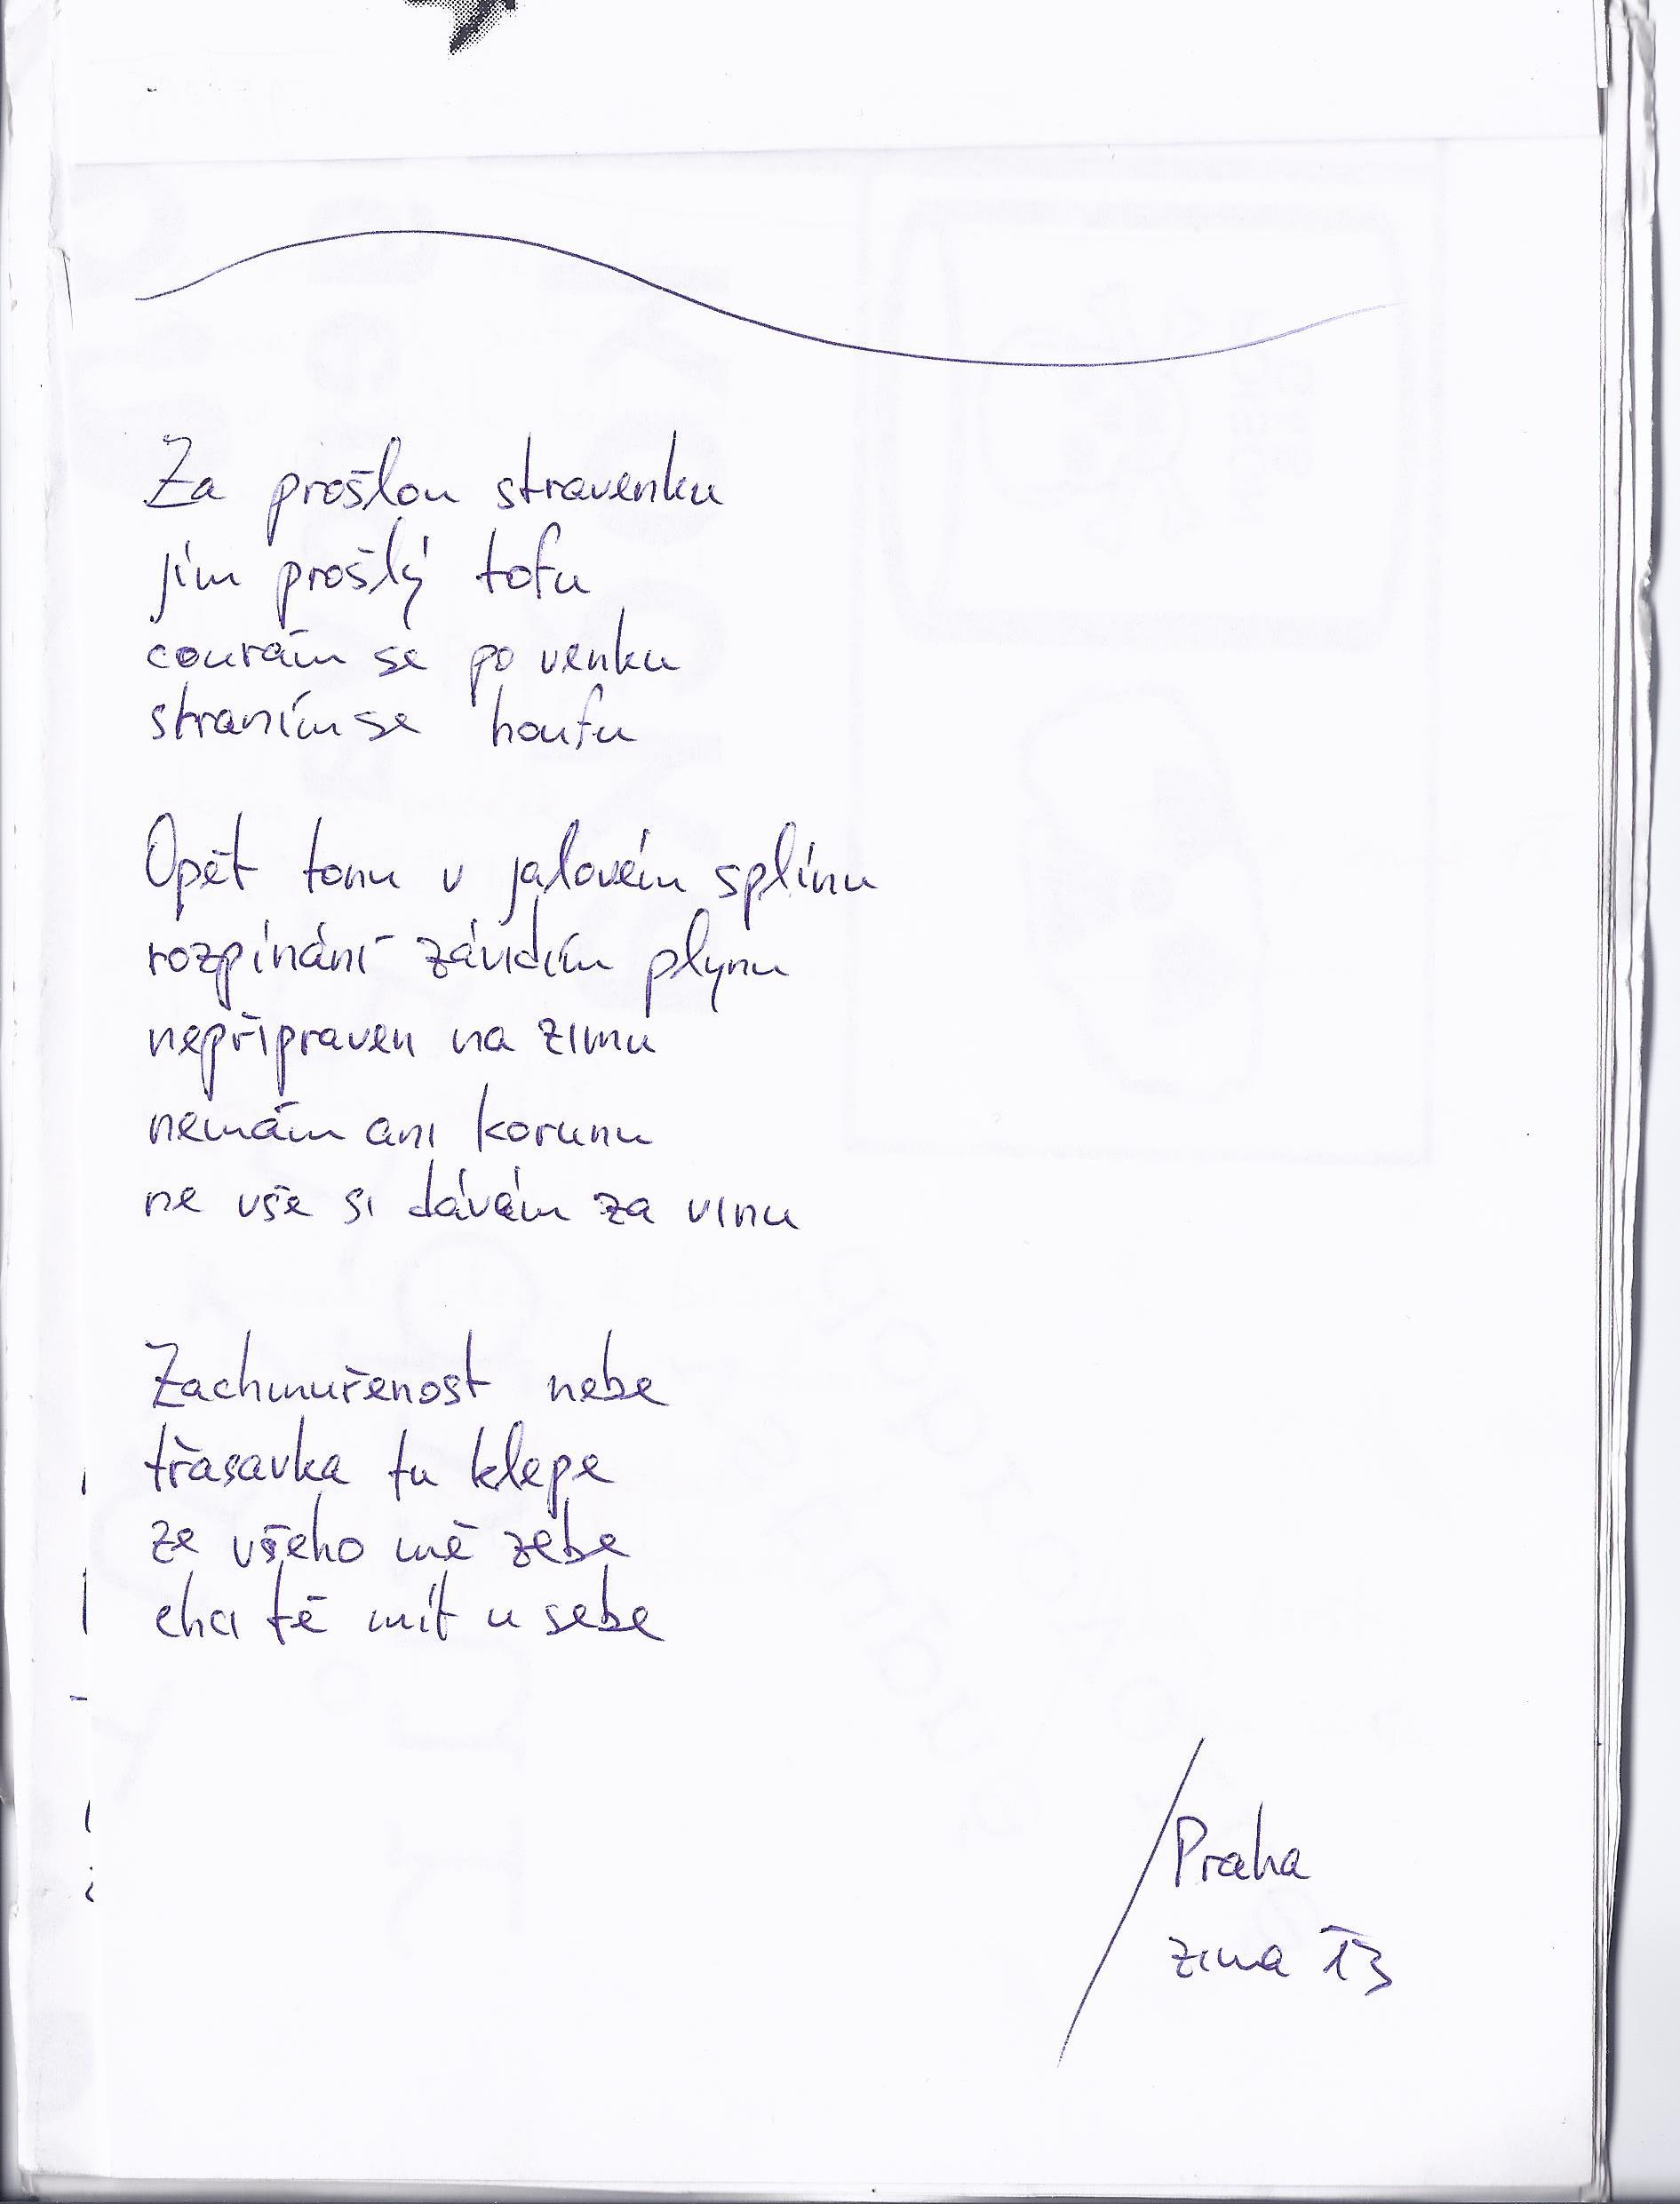 Za prošlou stravenku
jím prošlý tofu
courám se po venku
straním se houfu
Opět tonu v jalovém splínu
rozpínání závidím plynu
nepřipraven na zimu
nemám ani korunu
ne vše si dávám za vinu
Zachmuřenost nebe
třasavka tu klepe
ze všeho mě zebe
chci tě mít u sebe
Praha
zima 13